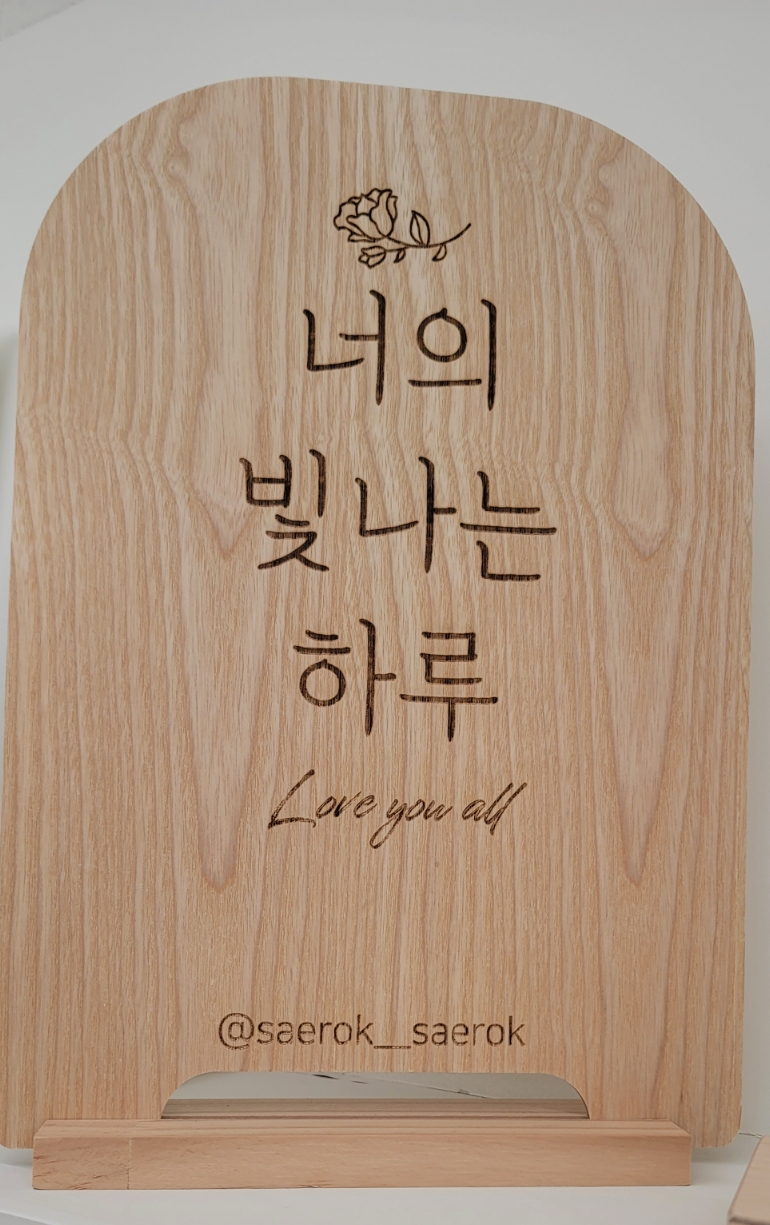 너의
빛나는
하루
Love you all
@saerok__saerok